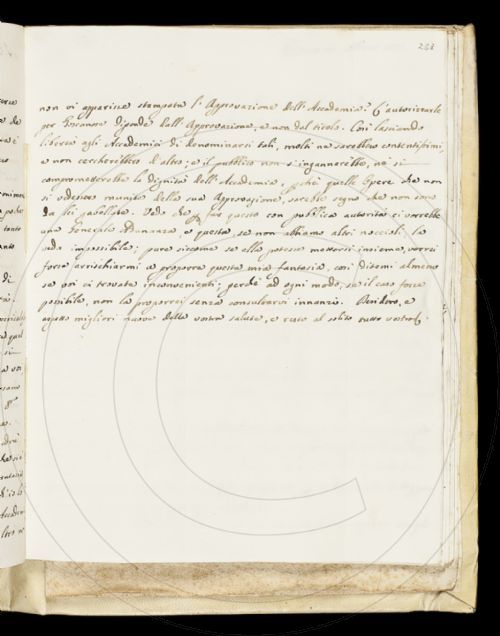 281
non vi apparisce stampata l'Approvazione dell'Accademia? L'autorizzarle
per dipende dall'Approvazione, e non dal titolo. Così lasciando
libertà agli Accademici di denominarsi tali, molti ne sarebbero contentissimi,
e non cercherebbero d'altro; e il pubblico non s'ingannarebbe, nè si
comprometterebbe la dignità dell'Accademia; perchè quelle Opere che non
si vedessero munite della sua Approvazione, sarebbe segno che non sono
da lei Vedo che per far questo con pubblica autorità ci vorrebbe
una generale Adunanza, e questa, se non abbiamo altri noccioli, la
vedo impossibile; pure siccome se ella potesse mettersi insieme, vorrei
forse arrischiarmi a proporre questa mia fantasia, così ditemi almeno
se voi ci trovate inconvenienti; perchè ad ogni modo, se il caso fosse
possibile, non la proporrei senza consultarvi innanzi. Desidero, e
aspetto migliori nuove della vostra salute, e resto al solito tutto vostro